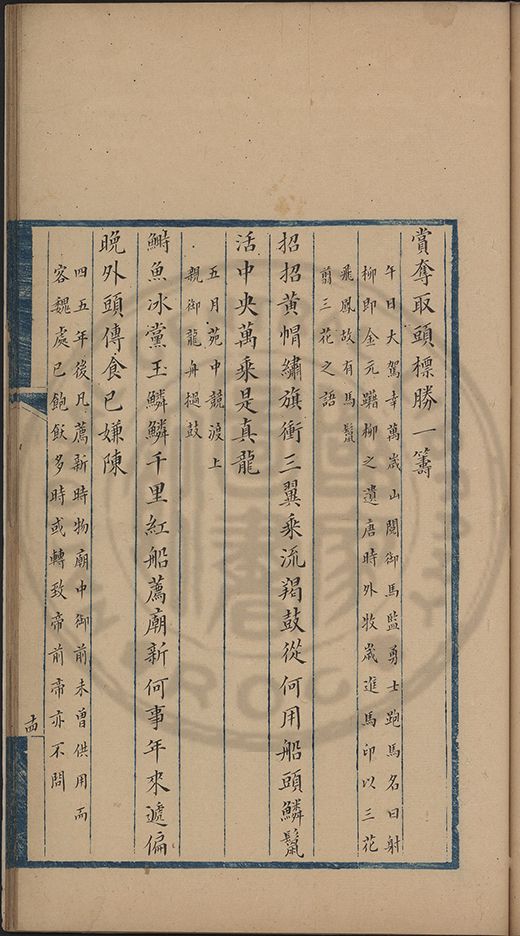 賞奪取頭標勝一籌
午日大駕幸萬歲山閱御馬監勇士跑馬名曰射
柳即金元躤柳之遺唐時外牧歲進馬印以三花
飛鳳故有馬鬣
翦三花之語
招招黃帽繡旗衝三翼乘流羯鼓從何用船頭鱗鬣
活中央萬乘是真龍
五月苑中競渡上
親御龍舟撾鼓
鰣魚冰黨玉鱗鱗千里紅船薦廟新何事年來遞偏
晚外頭傳食已嫌陳
四五年後凡薦新時物廟中御前未曾供用而
容魏處已飽飫多時或轉致帝前帝亦不問
十四